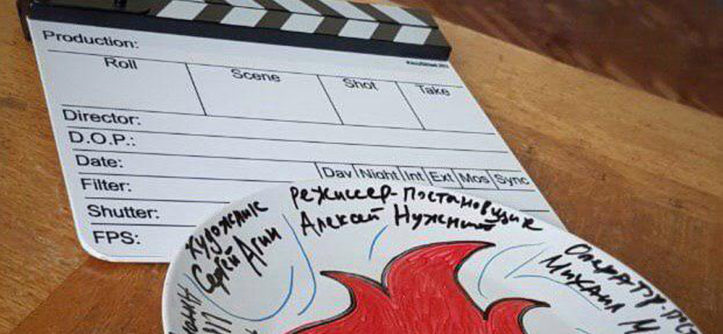 Production:
Roll Scene Shot Take
Director:
D.O.P.:
Date:
Day Night Int Ext Mos Sync
Filter:
Shutter:
FPS:
Режиссер-постановщик
Алексей Нужный
Художник
Сергей Агин
Михаил